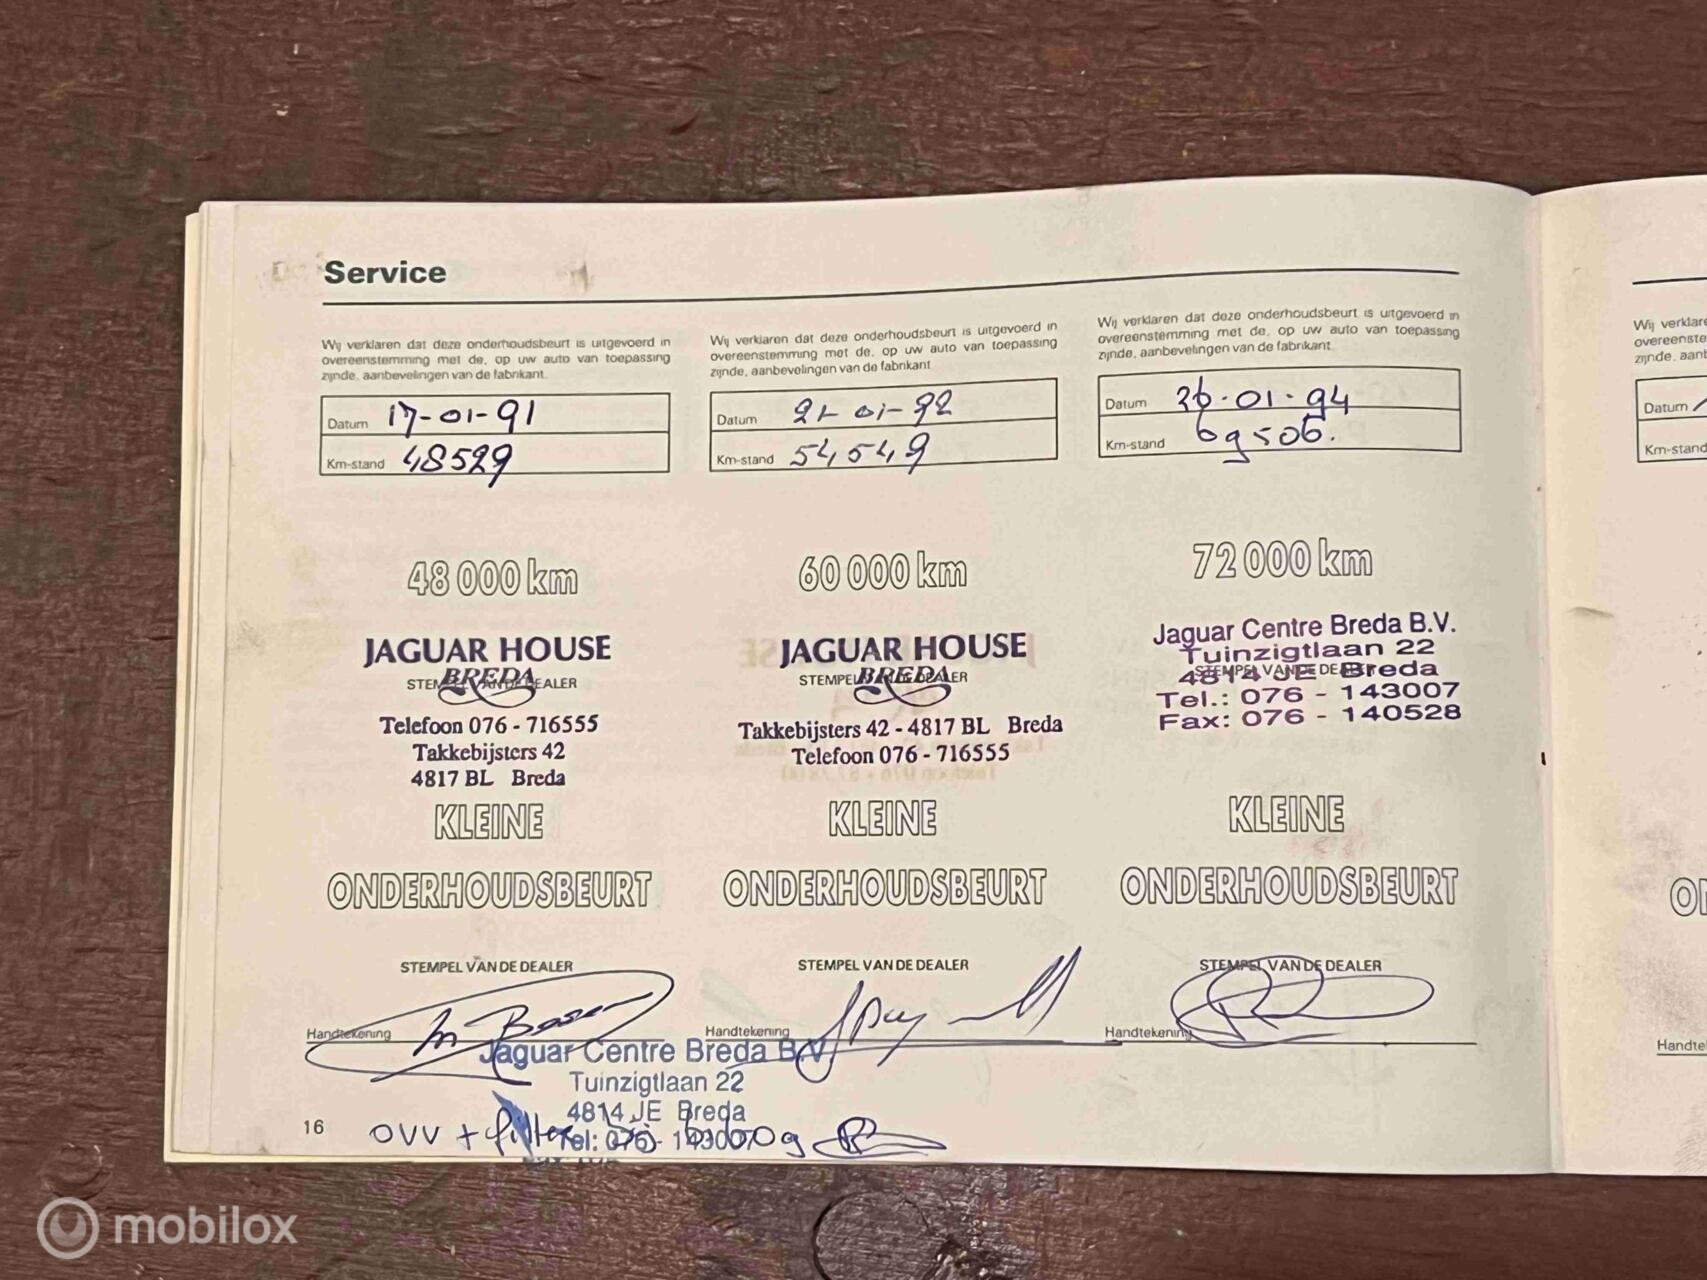 Service
Wij verklaren dat deze onderhoudsbeurt is uitgevoerd in
overeenstemming met de, op uw auto van toepassing
zijnde, aanbevelingen van de fabrikant.
Datum 17-01-91
Km-stand 48529
48 000 km
JAGUAR HOUSE
BREDA
STEMPEL VAN DE DEALER
Telefoon 076 - 716555
Takkebijsters 42
4817 BL Breda
KLEINE
ONDERHOUDSBEURT
STEMPEL VAN DE DEALER
Handtekening
Wij verklaren dat deze onderhoudsbeurt is uitgevoerd in
overeenstemming met de, op uw auto van toepassing
zijnde, aanbevelingen van de fabrikant
Datum 21-01-92
Km-stand 54549
60 000 km
JAGUAR HOUSE
BREDA
STEMPEL VAN DE DEALER
Takkebijsters 42 - 4817 BL Breda
Telefoon 076 - 716555
KLEINE
ONDERHOUDSBEURT
STEMPEL VAN DE DEALER
Handtekening
Wij verklaren dat deze onderhoudsbeurt is uitgevoerd in
overeenstemming met de, op uw auto van toepassing
zijnde, aanbevelingen van de fabrikant.
Datum 26-01-94
Km-stand 69506.
72 000 km
Jaguar Centre Breda B.V.
Tuinzigtlaan 22
STEMPEL VAN DE DEALER
4814 JE Breda
Tel.: 076 - 143007
Fax: 076 - 140528
KLEINE
ONDERHOUDSBEURT
STEMPEL VAN DE DEALER
Handtekening
Jaguar Centre Breda B.V.
Tuinzigtlaan 22
4814 JE Breda
Tel: 076 - 143007
16
OVV + filter
Datum
Km-stand
mobilox